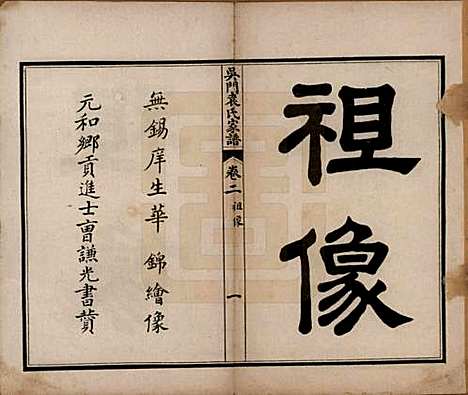 祖像
吳門袁氏家譜
卷二
祖像
一
無錫庠生華錦繪像
元和鄉貢進士曹謙光書贊